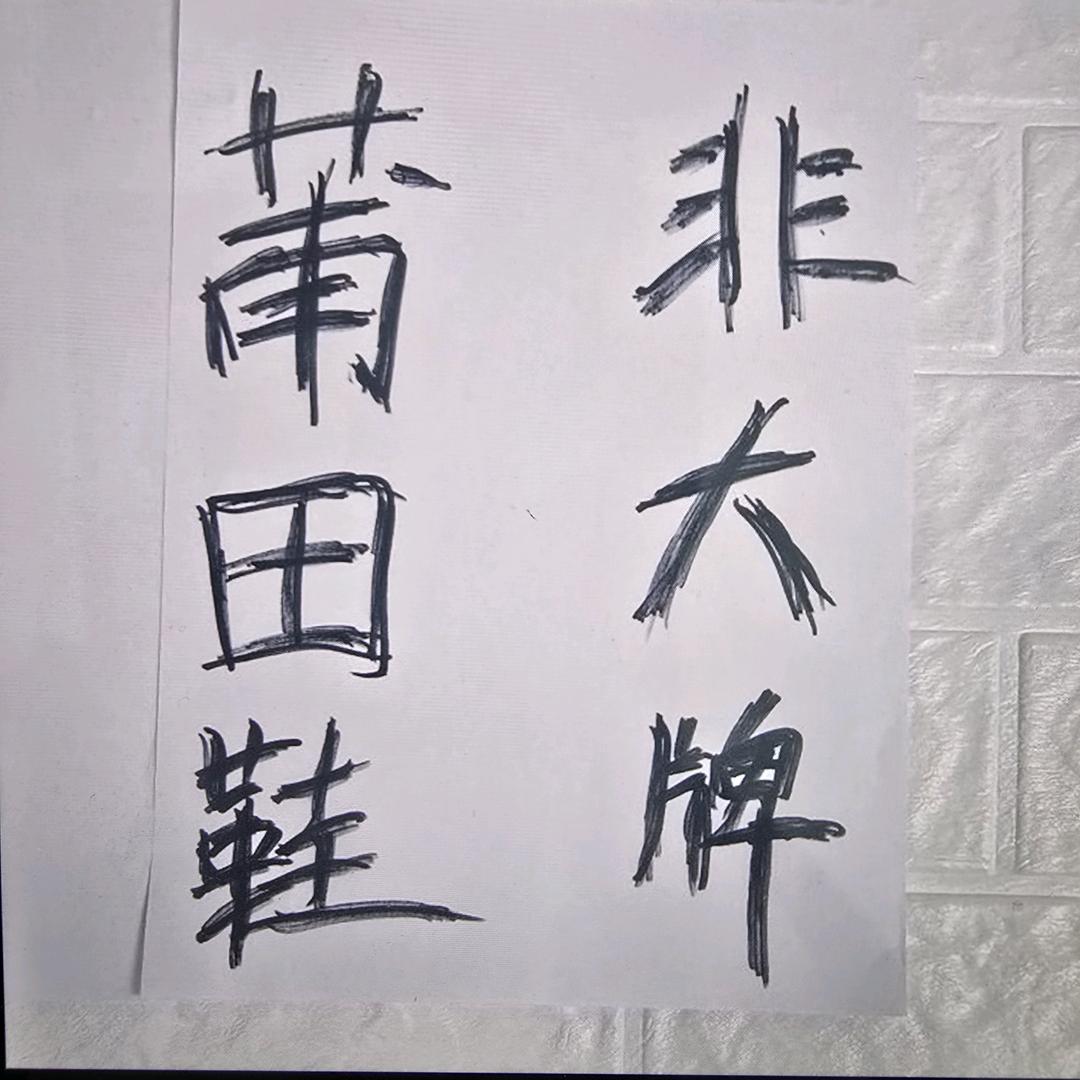 莆田鞋
非大牌